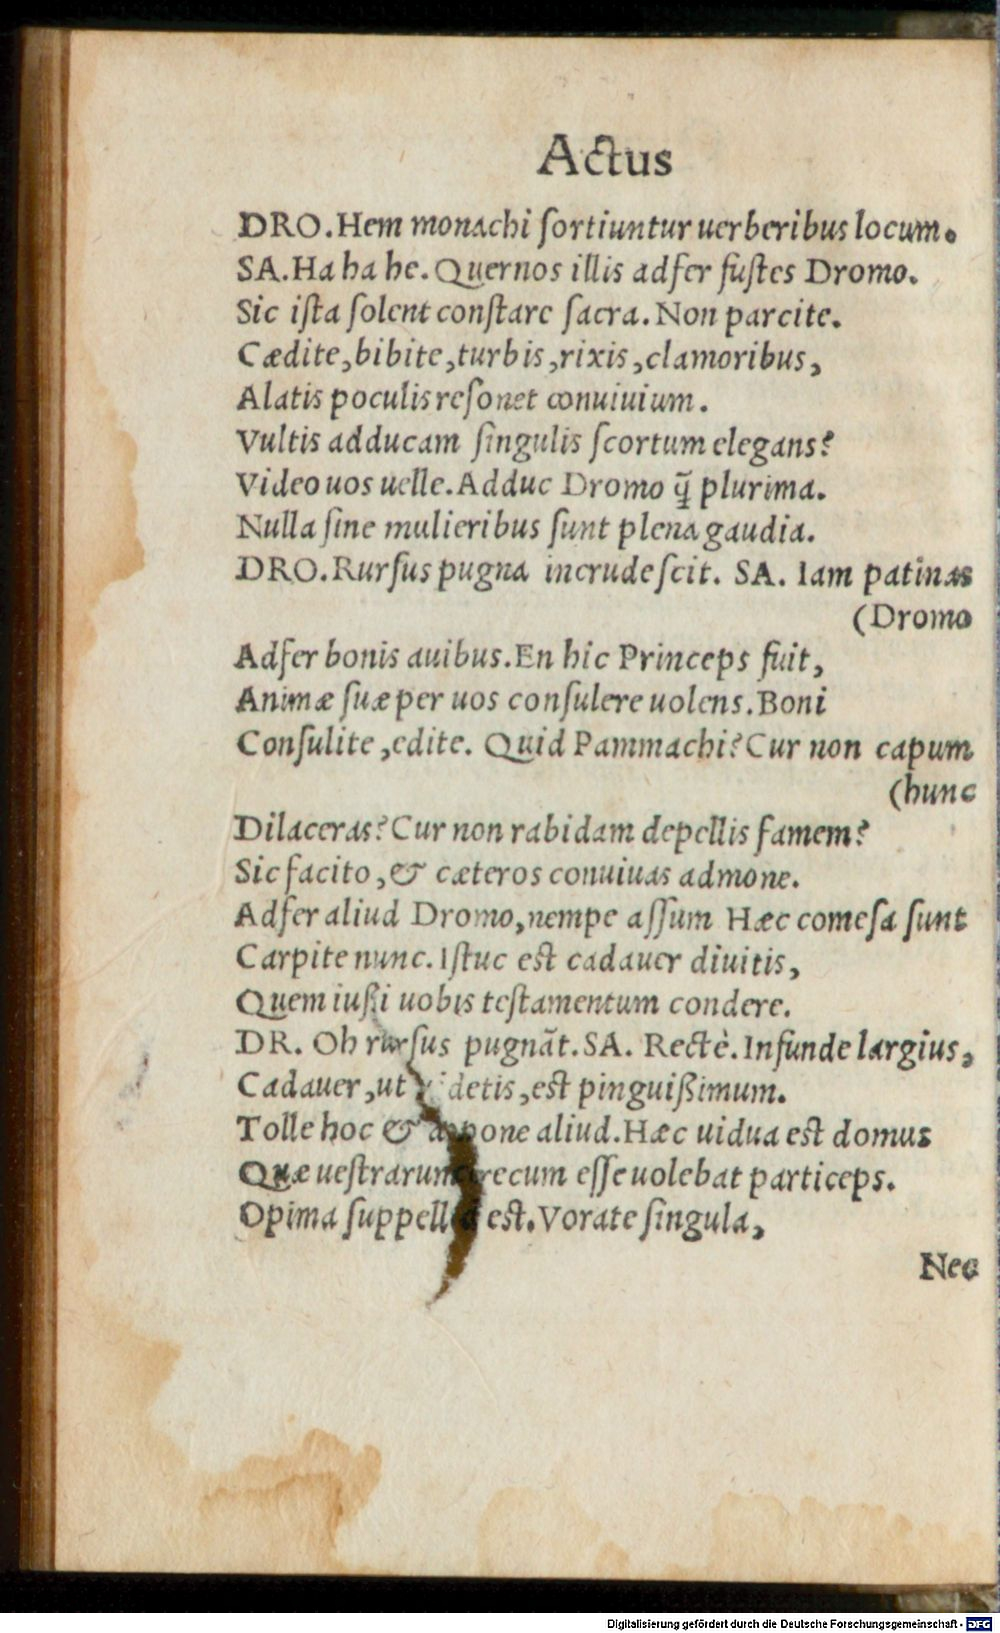 Actus
DRO.Hem monachi ſortiuntur uerberibus locum.
SA.Ha ha he.Quernos illis adfer fuſtes Dromo.
Sic iſta ſolent conſtare ſacra.Non parcite.
Cædite,bibite,turbis,rixis,clamoribus,
Alatis poculis reſonet conuiuium.
Vultis adducam ſingulis ſcortum elegans?
Video uos uelle.Adduc Dromo q̃ plurima.
Nulla ſine mulieribus ſunt plena gaudia.
DRO.Rurſus pugna incrudeſcit. SA. Iam patinas
(Dromo
Adfer bonis auibus.En hic Princeps fuit,
Animæ ſuæ per uos conſulere uolens.Boni
Conſulite,edite. Quid Pammachi?Cur non capum
(hunc
Dilaceras?Cur non rabidam depellis famem?
Sic facito,& cæteros conuiuas admone.
Adfer aliud Dromo,nempe aſſum Hæc comeſa ſunt
Carpite nunc.Iſtuc eſt cadauer diuitis,
Quem iußi uobis teſtamentum condere.
DR. Oh rurſus pugnãt.SA. Rectè.Infunde largius,
Cadauer,ut detis,eſt pinguißimum.
Tolle hoc & appone aliud.Hæc uidua eſt domus
Quæ ueſtrarum precum eſſe uolebat particeps.
Opima ſuppell eſt.Vorate ſingula,
Nec
Digitalisierung gefördert durch die Deutsche Forschungsgemeinschaft - DFG